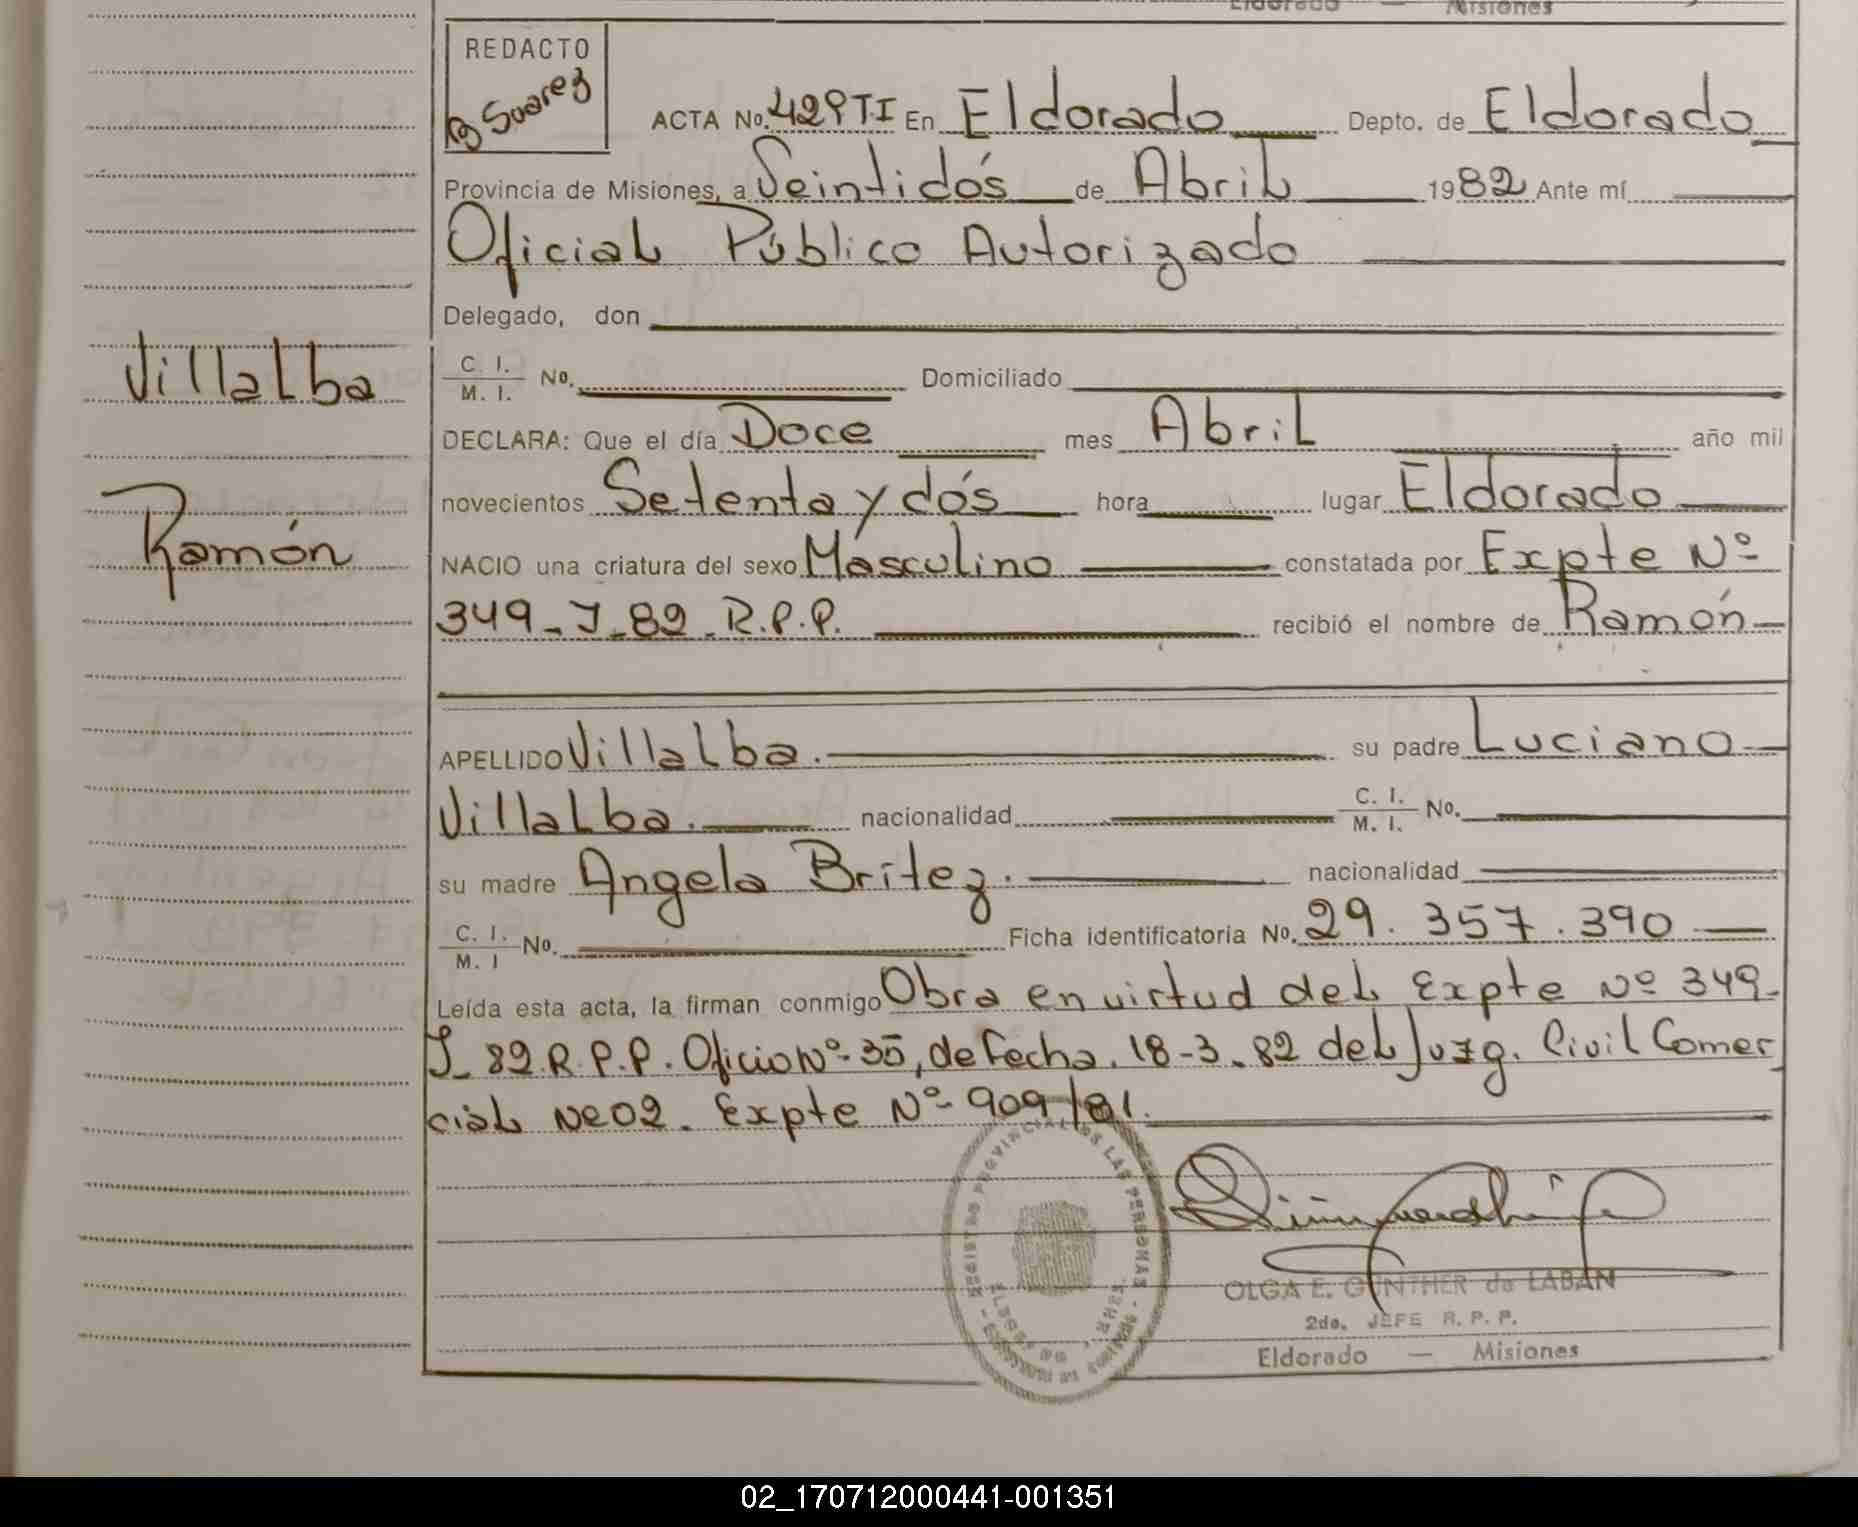 Eldorado — Misiones
REDACTO
B Suarez
ACTA No. 429 TI En Eldorado Depto. de Eldorado
Provincia de Misiones, a Veintidós de Abril 1982 Ante mí
Oficial Público Autorizado
Delegado, don
C. I. / M. I. No. Domiciliado
Villalba
DECLARA: Que el día Doce mes Abril año mil
novecientos Setenta y dós hora lugar Eldorado
Ramón
NACIO una criatura del sexo Masculino constatada por Expte Nº
349-J-82-R.P.P. recibió el nombre de Ramón
APELLIDO Villalba. su padre Luciano
Villalba. nacionalidad C. I. / M. I. No.
su madre Angela Britez. nacionalidad
C. I. / M. I No. Ficha identificatoria No. 29.357.390
Leída esta acta, la firman conmigo Obra en virtud del Expte Nº 349-
J-82.R.P.P. Oficio Nº 35, de fecha. 18-3-82 del Juzg. Civil Comer
cial Nº 02. Expte Nº 909/81.
REGISTRO PROVINCIAL DE LAS PERSONAS
OLGA E. GUNTHER de LABAN
2do. JEFE R. P. P.
Eldorado — Misiones
02_170712000441-001351